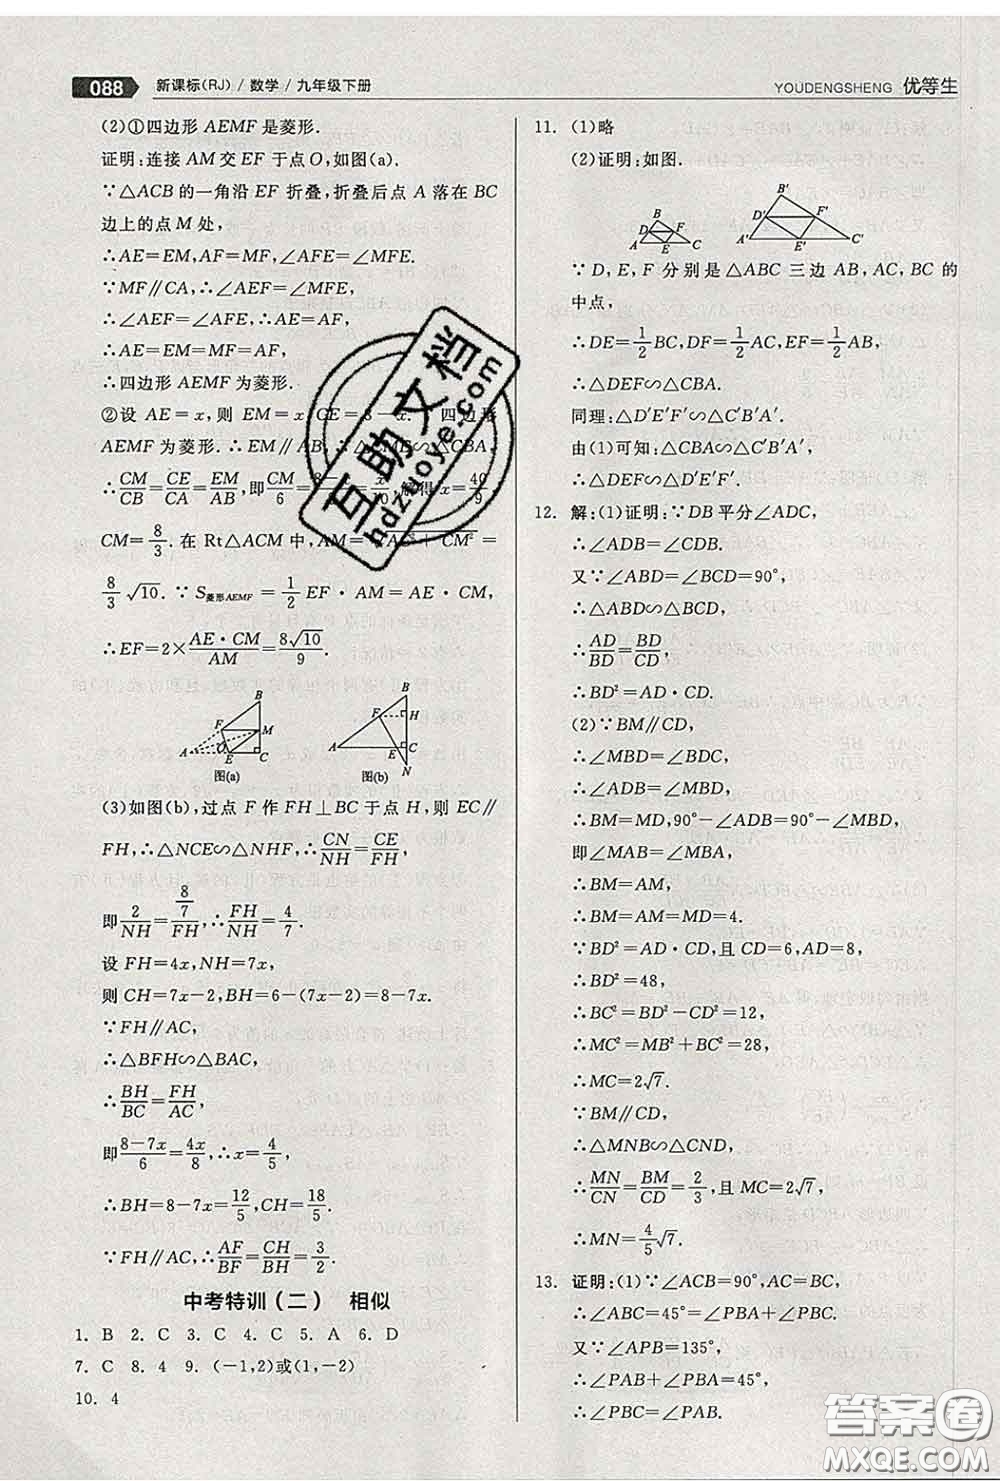 088 新课标(RJ)/数学/九年级下册
YOUDENGSHENG 优等生
(2)①四边形 AEMF 是菱形.
证明:连接 AM 交 EF 于点 O,如图(a).
∵△ACB 的一角沿 EF 折叠,折叠后点 A 落在 BC
边上的点 M 处,
∴AE=EM,AF=MF,∠AFE=∠MFE.
∵MF∥CA,∴∠AEF=∠MFE,
∴∠AEF=∠AFE,∴AE=AF,
∴AE=EM=MF=AF,
∴四边形 AEMF 为菱形.
②设 AE=x,则 EM=x,CE=8-x. 四边形
AEMF 为菱形.∴EM∥AB,∴△CME∽△CBA,
∴CM/CB=CE/CA=EM/AB,即CM/6=8-x/ =x/10,解得x=40/9
CM=8/3.在 Rt△ACM 中,AM=√AC²+CM²=
8/3√10.∵S菱形AEMF=1/2EF·AM=AE·CM,
∴EF=2×AE·CM/AM=8√10/9.
B F M A O E C 图(a)
B F H A E C N 图(b)
(3)如图(b),过点 F 作 FH⊥BC 于点 H,则 EC∥
FH,∴△NCE∽△NHF,∴CN/NH=CE/FH,
即2/NH=(8/7)/FH,∴FH/NH=4/7.
设 FH=4x,NH=7x,
则 CH=7x-2,BH=6-(7x-2)=8-7x.
∵FH∥AC,
∴△BFH∽△BAC,
∴BH/BC=FH/AC,
即8-7x/6=4x/8,∴x=4/5,
∴BH=8-7x=12/5,CH=18/5.
∵FH∥AC,∴AF/BF=CH/BH=3/2.
中考特训(二) 相似
1. B 2. C 3. C 4. C 5. A 6. D
7. C 8. 4 9. (-1,2)或(1,-2)
10. 4
11. (1)略
(2)证明:如图.
B D F A E C B′ D′ F′ A′ E′ C′
∵D,E,F 分别是△ABC 三边 AB,AC,BC 的
中点,
∴DE=1/2BC,DF=1/2AC,EF=1/2AB,
∴△DEF∽△CBA.
同理:△D′E′F′∽△C′B′A′.
由(1)可知:△CBA∽△C′B′A′,
∴△DEF∽△D′E′F′.
12. 解:(1)证明:∵DB平分∠ADC,
∴∠ADB=∠CDB.
又∵∠ABD=∠BCD=90°,
∴△ABD∽△BCD,
∴AD/BD=BD/CD,
∴BD²=AD·CD.
(2)∵BM∥CD,
∴∠MBD=∠BDC,
∴∠ADB=∠MBD,
∴BM=MD,90°-∠ADB=90°-∠MBD,
即∠MAB=∠MBA,
∴BM=AM,
∴BM=AM=MD=4.
∵BD²=AD·CD,且CD=6,AD=8,
∴BD²=48,
∴BC²=BD²-CD²=12,
∴MC²=MB²+BC²=28,
∴MC=2√7.
∵BM∥CD,
∴△MNB∽△CND,
∴MN/CN=BM/CD=2/3,且MC=2√7,
∴MN=4/5√7.
13. 证明:(1)∵∠ACB=90°,AC=BC,
∴∠ABC=45°=∠PBA+∠PBC.
又∵∠APB=135°,
∴∠PAB+∠PBA=45°,
∴∠PBC=∠PAB.
互助文档
hdzuoye.com
答案圈
MXQE.COM